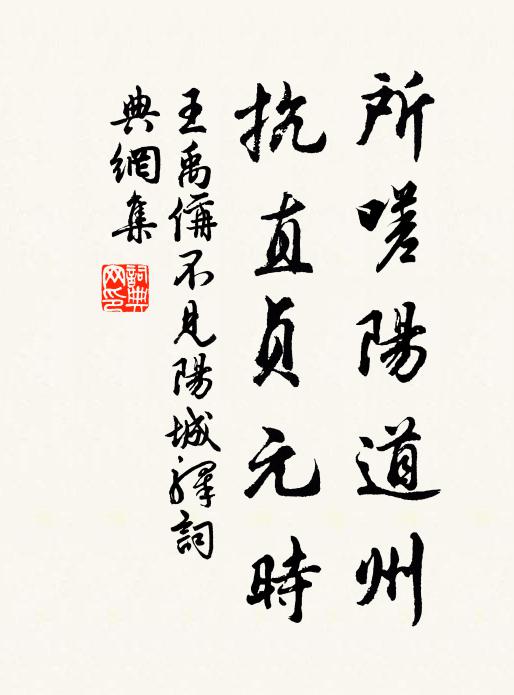 所嗟陽道州
抗直貞元時
王禹偁不見陽城驛詞
典網集
詞典
网印